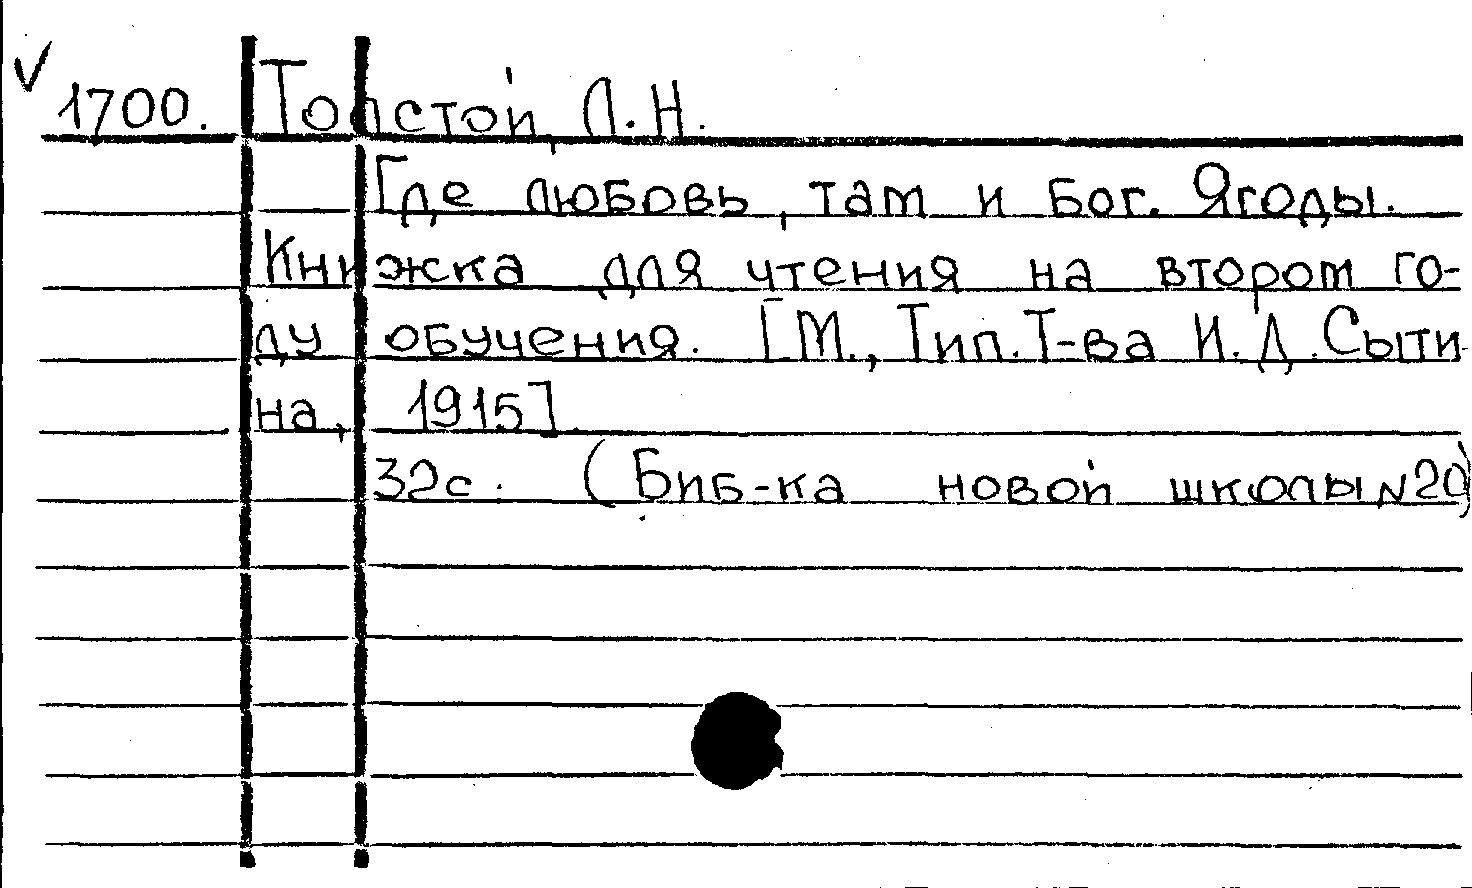 ✓ 1700. Толстой, Л.Н.
Где любовь, там и Бог. Ягоды.
Книжка для чтения на втором го-
ду обучения. [М., Тип. Т-ва И.Д. Сыти-
на, 1915].
32с. (Биб-ка новой школы N20)